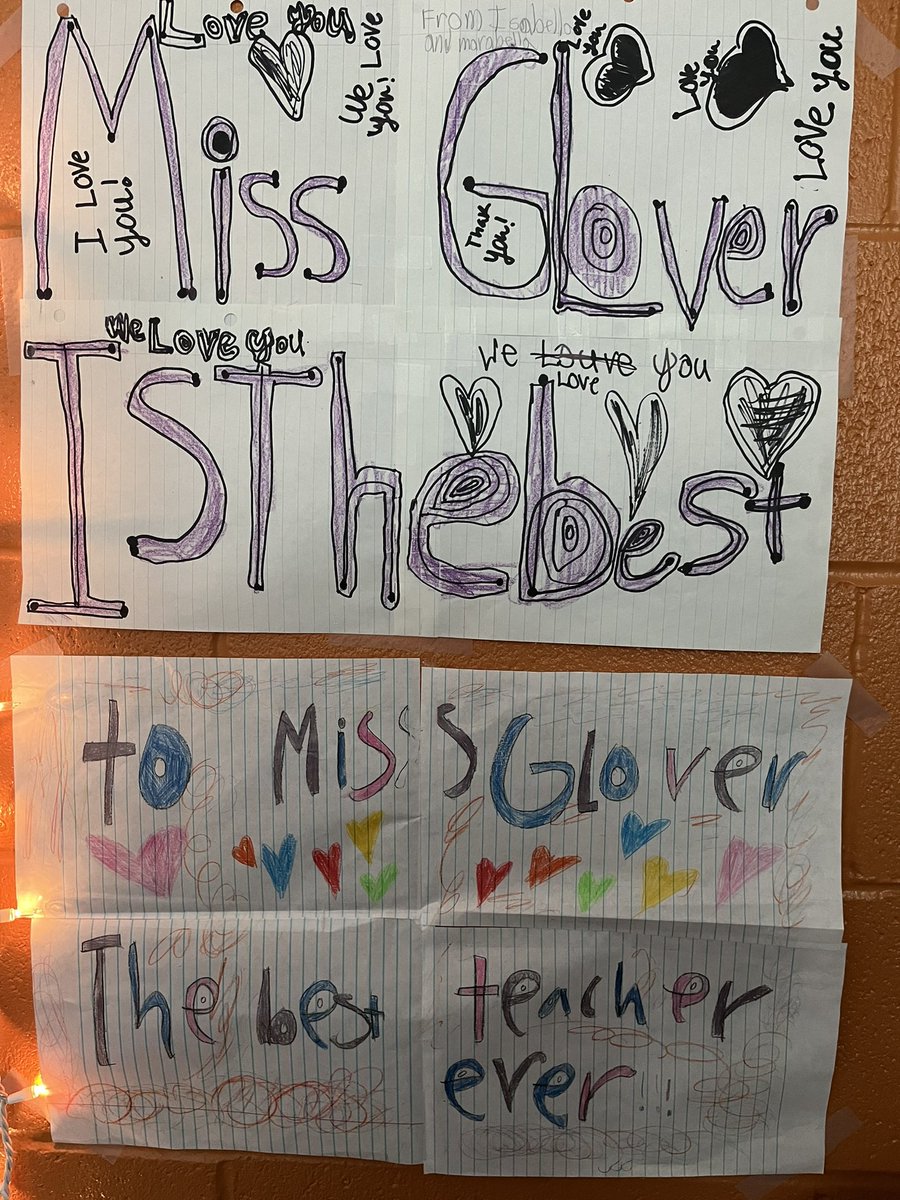 Love You
We Love
you!
From Isabella
and marabella
Love
You
Love
You
Love You
Miss Glover
I Love
you!
Thank
you!
We Love you
We Louve you
Love
Is The best
to Miss S Glover
The best teacher
ever!!!